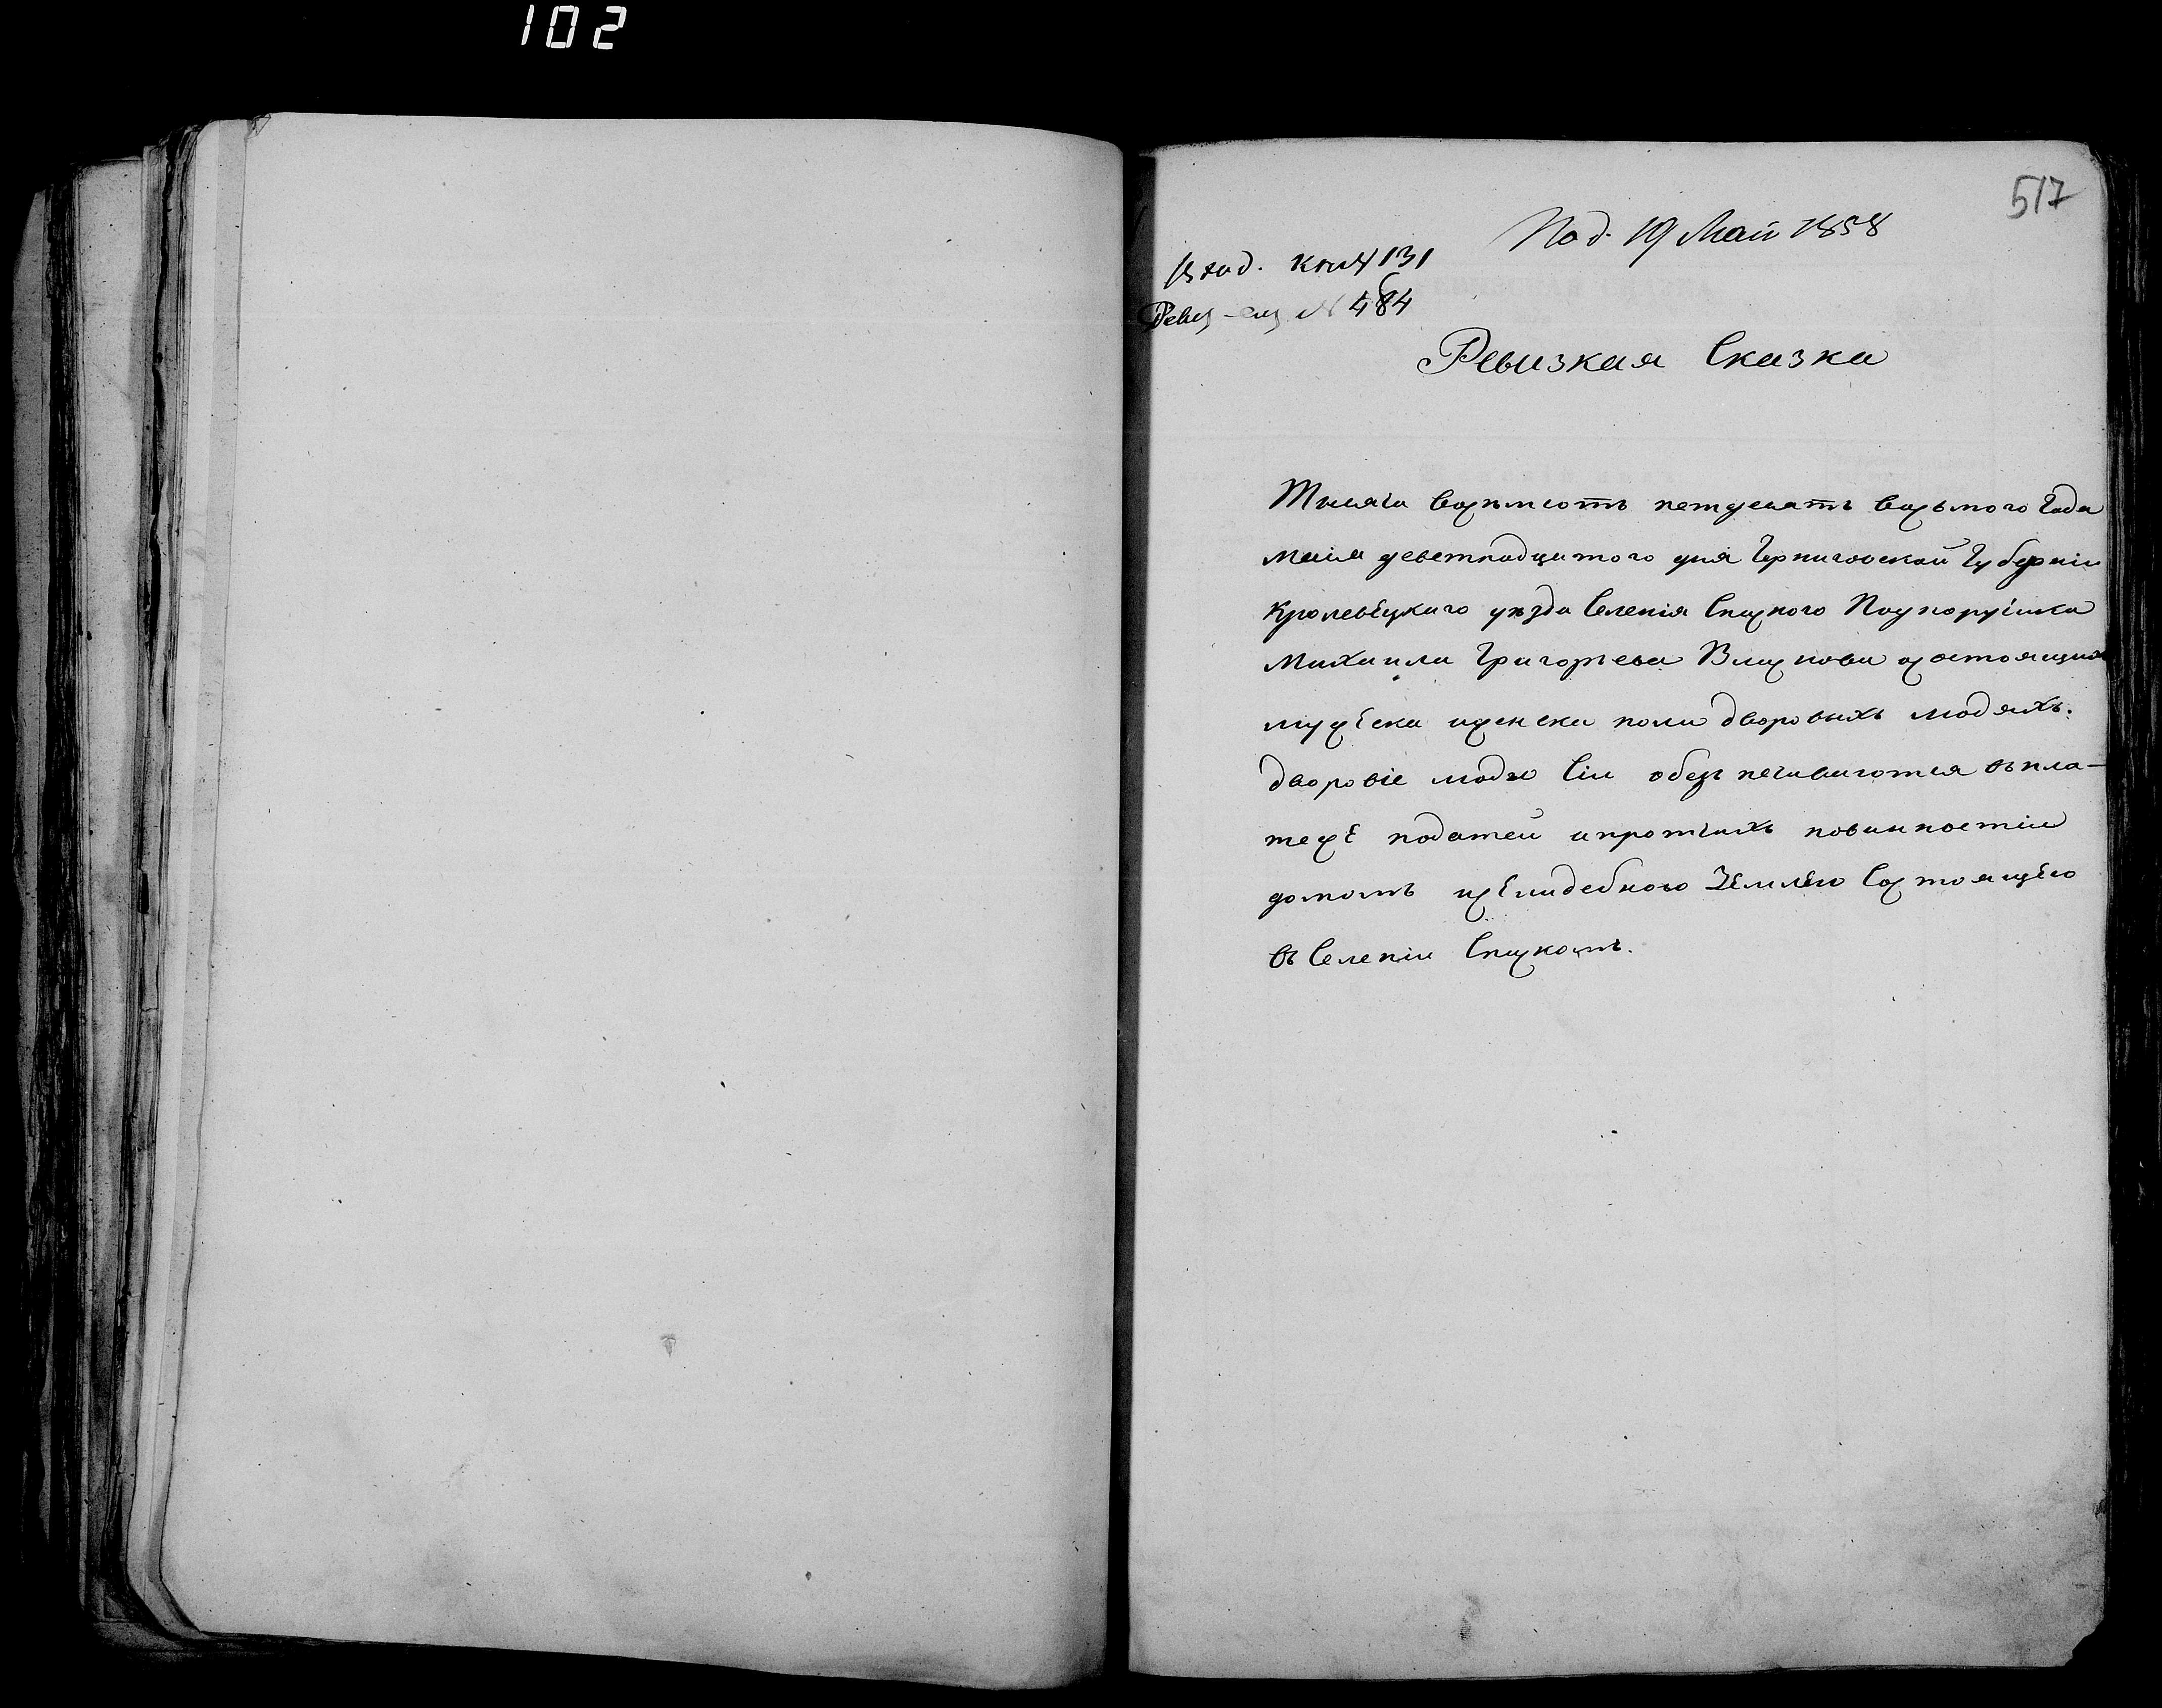 102
517
Под. 19 Май 1858
Вход. книч 131
Ревиз-ску № 484
Ревизкая Сказка
Тысяча восьмсотъ петдесатъ восьмого года
маія деветнадцатого дня Черниговской Губерніи
Кролевецкаго уѣзда Селенія Спаского Подпоручика
Михаила Григорьева осостоящихъ
мужеска иженска пола дворовихъ людяхъ.
дворовіе люде сіи обезпечиваются въпла-
теже податей ипротчихъ повинностіи
домомъ иселидебною Землею состоящею
въ Селеніи Спаскомъ.